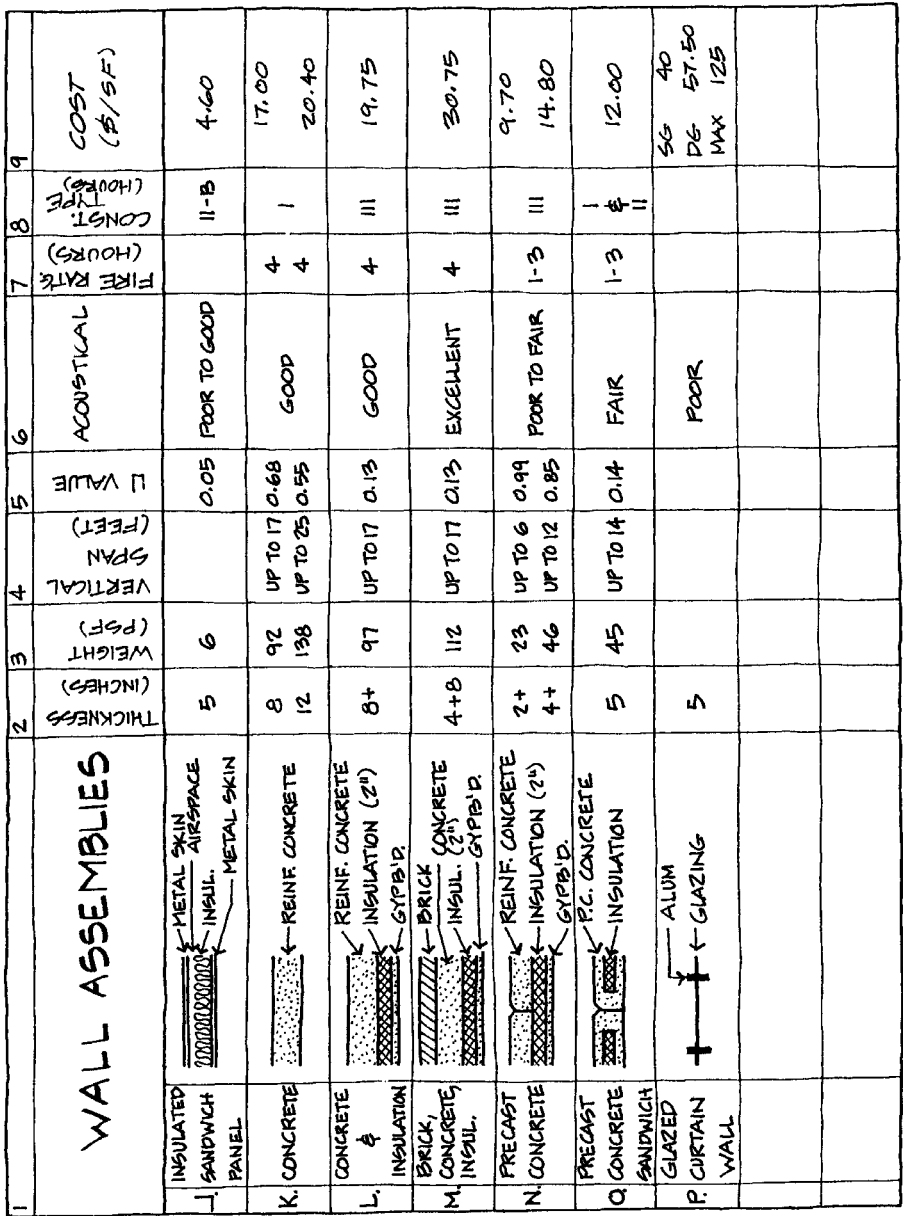 1
WALL ASSEMBLIES
2
THICKNESS
(INCHES)
3
WEIGHT
(PSF)
4
VERTICAL
SPAN
(FEET)
5
U VALUE
6
ACOUSTICAL
7
FIRE RAT'G
(HOURS)
8
CONST.
TYPE
(HOURS)
9
COST
($/SF)
J.
INSULATED
SANDWICH
PANEL
METAL SKIN
AIRSPACE
INSUL.
METAL SKIN
5
6
0.05
POOR TO GOOD
II-B
4.60
K.
CONCRETE
REINF. CONCRETE
8 92 UP TO 17 0.68
12 138 UP TO 25 0.55
GOOD
4
4
I
17.00
20.40
L.
CONCRETE
&
INSULATION
REINF. CONCRETE
INSULATION (2")
GYPB'D.
8+
97
UP TO 17
0.13
GOOD
4
III
19.75
M.
BRICK,
CONCRETE,
INSUL.
BRICK
CONCRETE
INSUL. (2")
GYPB'D.
4+8
112
UP TO 17
0.13
EXCELLENT
4
III
30.75
N.
PRECAST
CONCRETE
REINF. CONCRETE
INSULATION (2")
GYPB'D.
2+ 23 UP TO 6 0.99
4+ 46 UP TO 12 0.85
POOR TO FAIR
1-3
III
9.70
14.80
O.
PRECAST
CONCRETE
SANDWICH
P.C. CONCRETE
INSULATION
5
45
UP TO 14
0.14
FAIR
1-3
I
&
II
12.00
P.
GLAZED
CURTAIN
WALL
ALUM
GLAZING
5
POOR
SG 40
DG 57.50
MAX 125